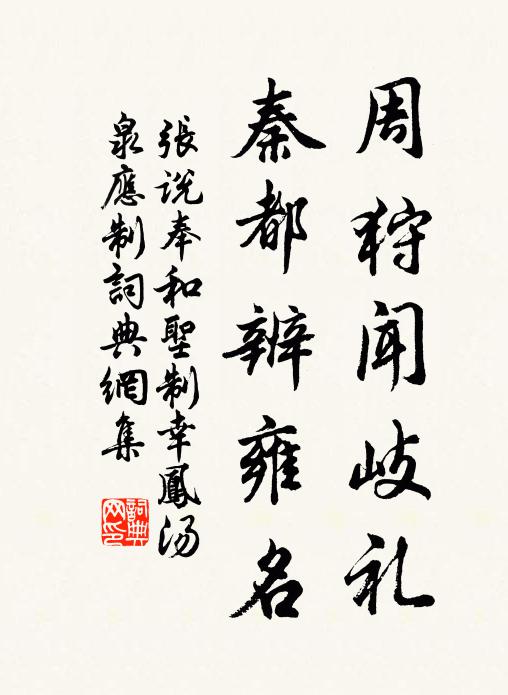 周狩闻岐礼
秦都辨雍名
張说奉和聖制幸鳳汤
泉應制詞典網集
詞典
网印